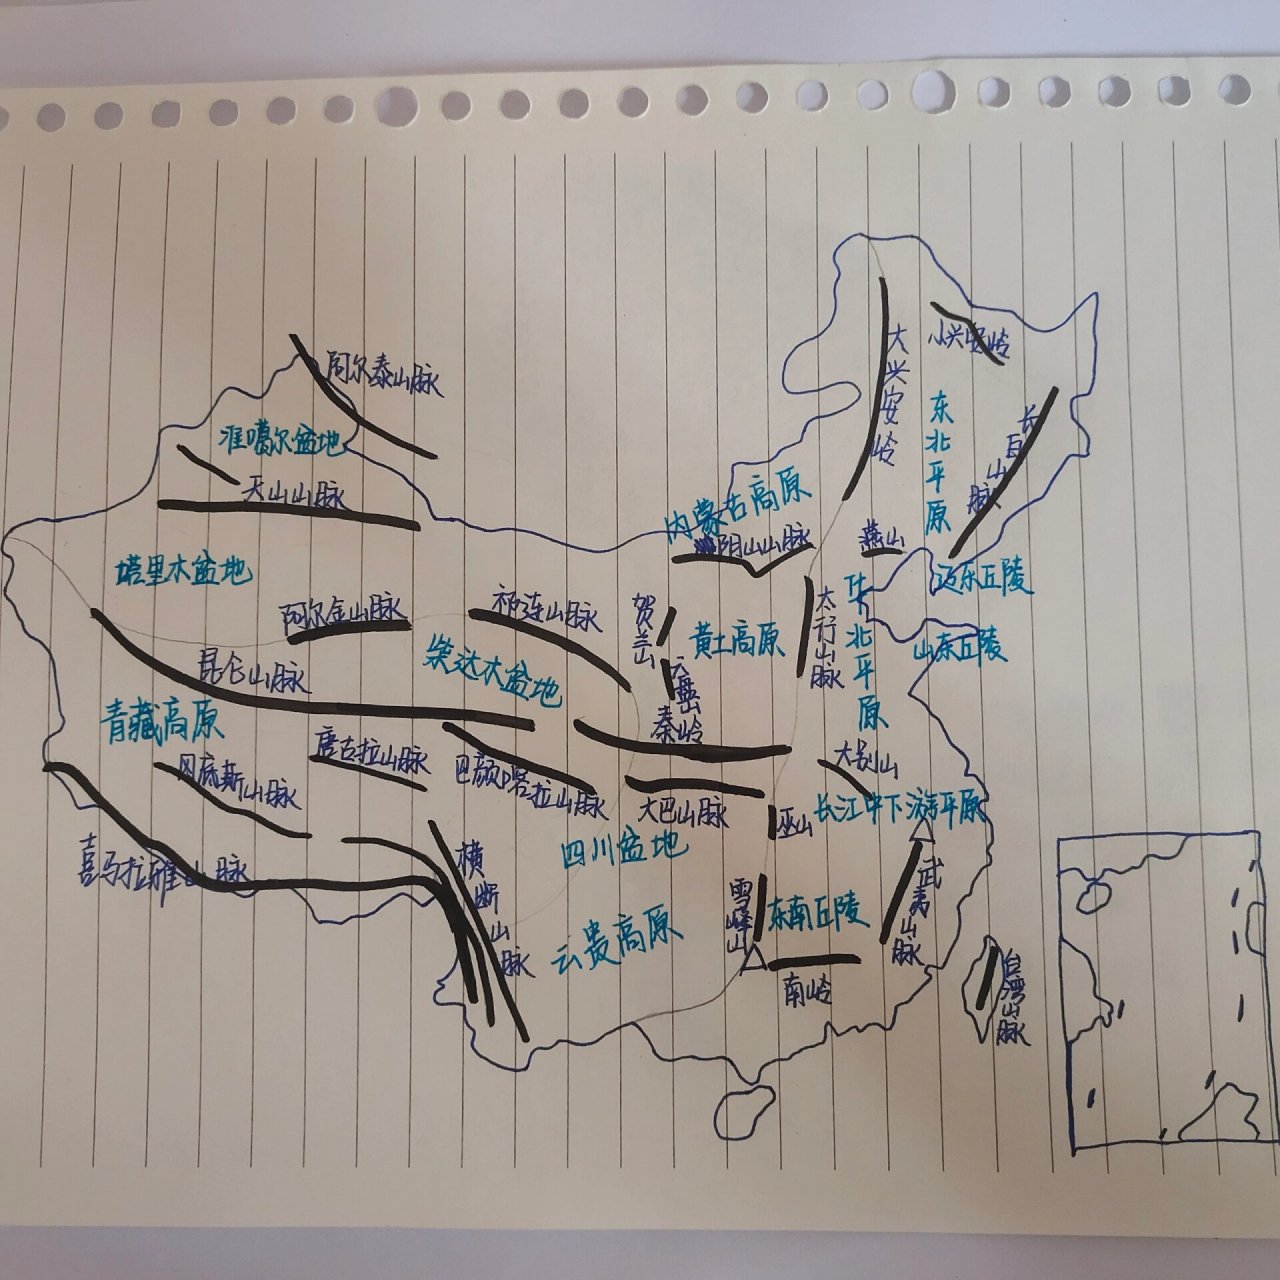 阿尔泰山脉
准噶尔盆地
天山山脉
塔里木盆地
阿尔金山脉
祁连山脉
昆仑山脉
柴达木盆地
青藏高原
冈底斯山脉
唐古拉山脉
巴颜喀拉山脉
喜马拉雅山脉
横断山脉
大兴安岭
小兴安岭
东北平原
长白山脉
内蒙古高原
阴山山脉
燕山
辽东丘陵
贺兰山
六盘山
黄土高原
太行山脉
华北平原
山东丘陵
秦岭
大巴山脉
大别山
巫山
长江中下游平原
四川盆地
云贵高原
雪峰山
东南丘陵
武夷山脉
南岭
台湾山脉